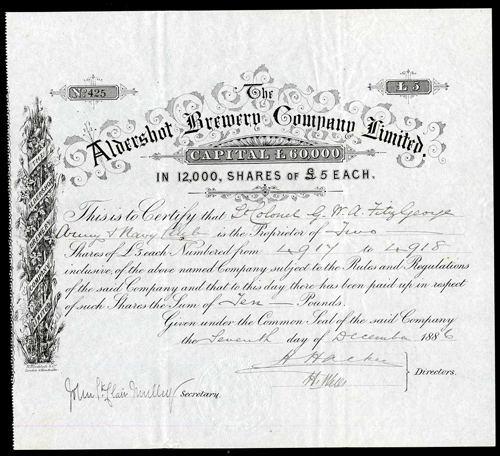 No. 425
£5
The
Aldershot Brewery Company Limited.
CAPITAL £60,000
IN 12,000, SHARES OF £5 EACH.
This is to Certify that Lt Colonel G. W. A. FitzGeorge
Army & Navy Club is the Proprietor of Two
Shares of £5 each Numbered from 4917 to 4918
inclusive, of the above named Company subject to the Rules and Regulations
of the said Company and that to this day there has been paid up in respect
of such Shares the Sum of Ten Pounds.
Given under the Common Seal of the said Company
the Seventh day of December 1886
Directors.
John St Clair Secretary.